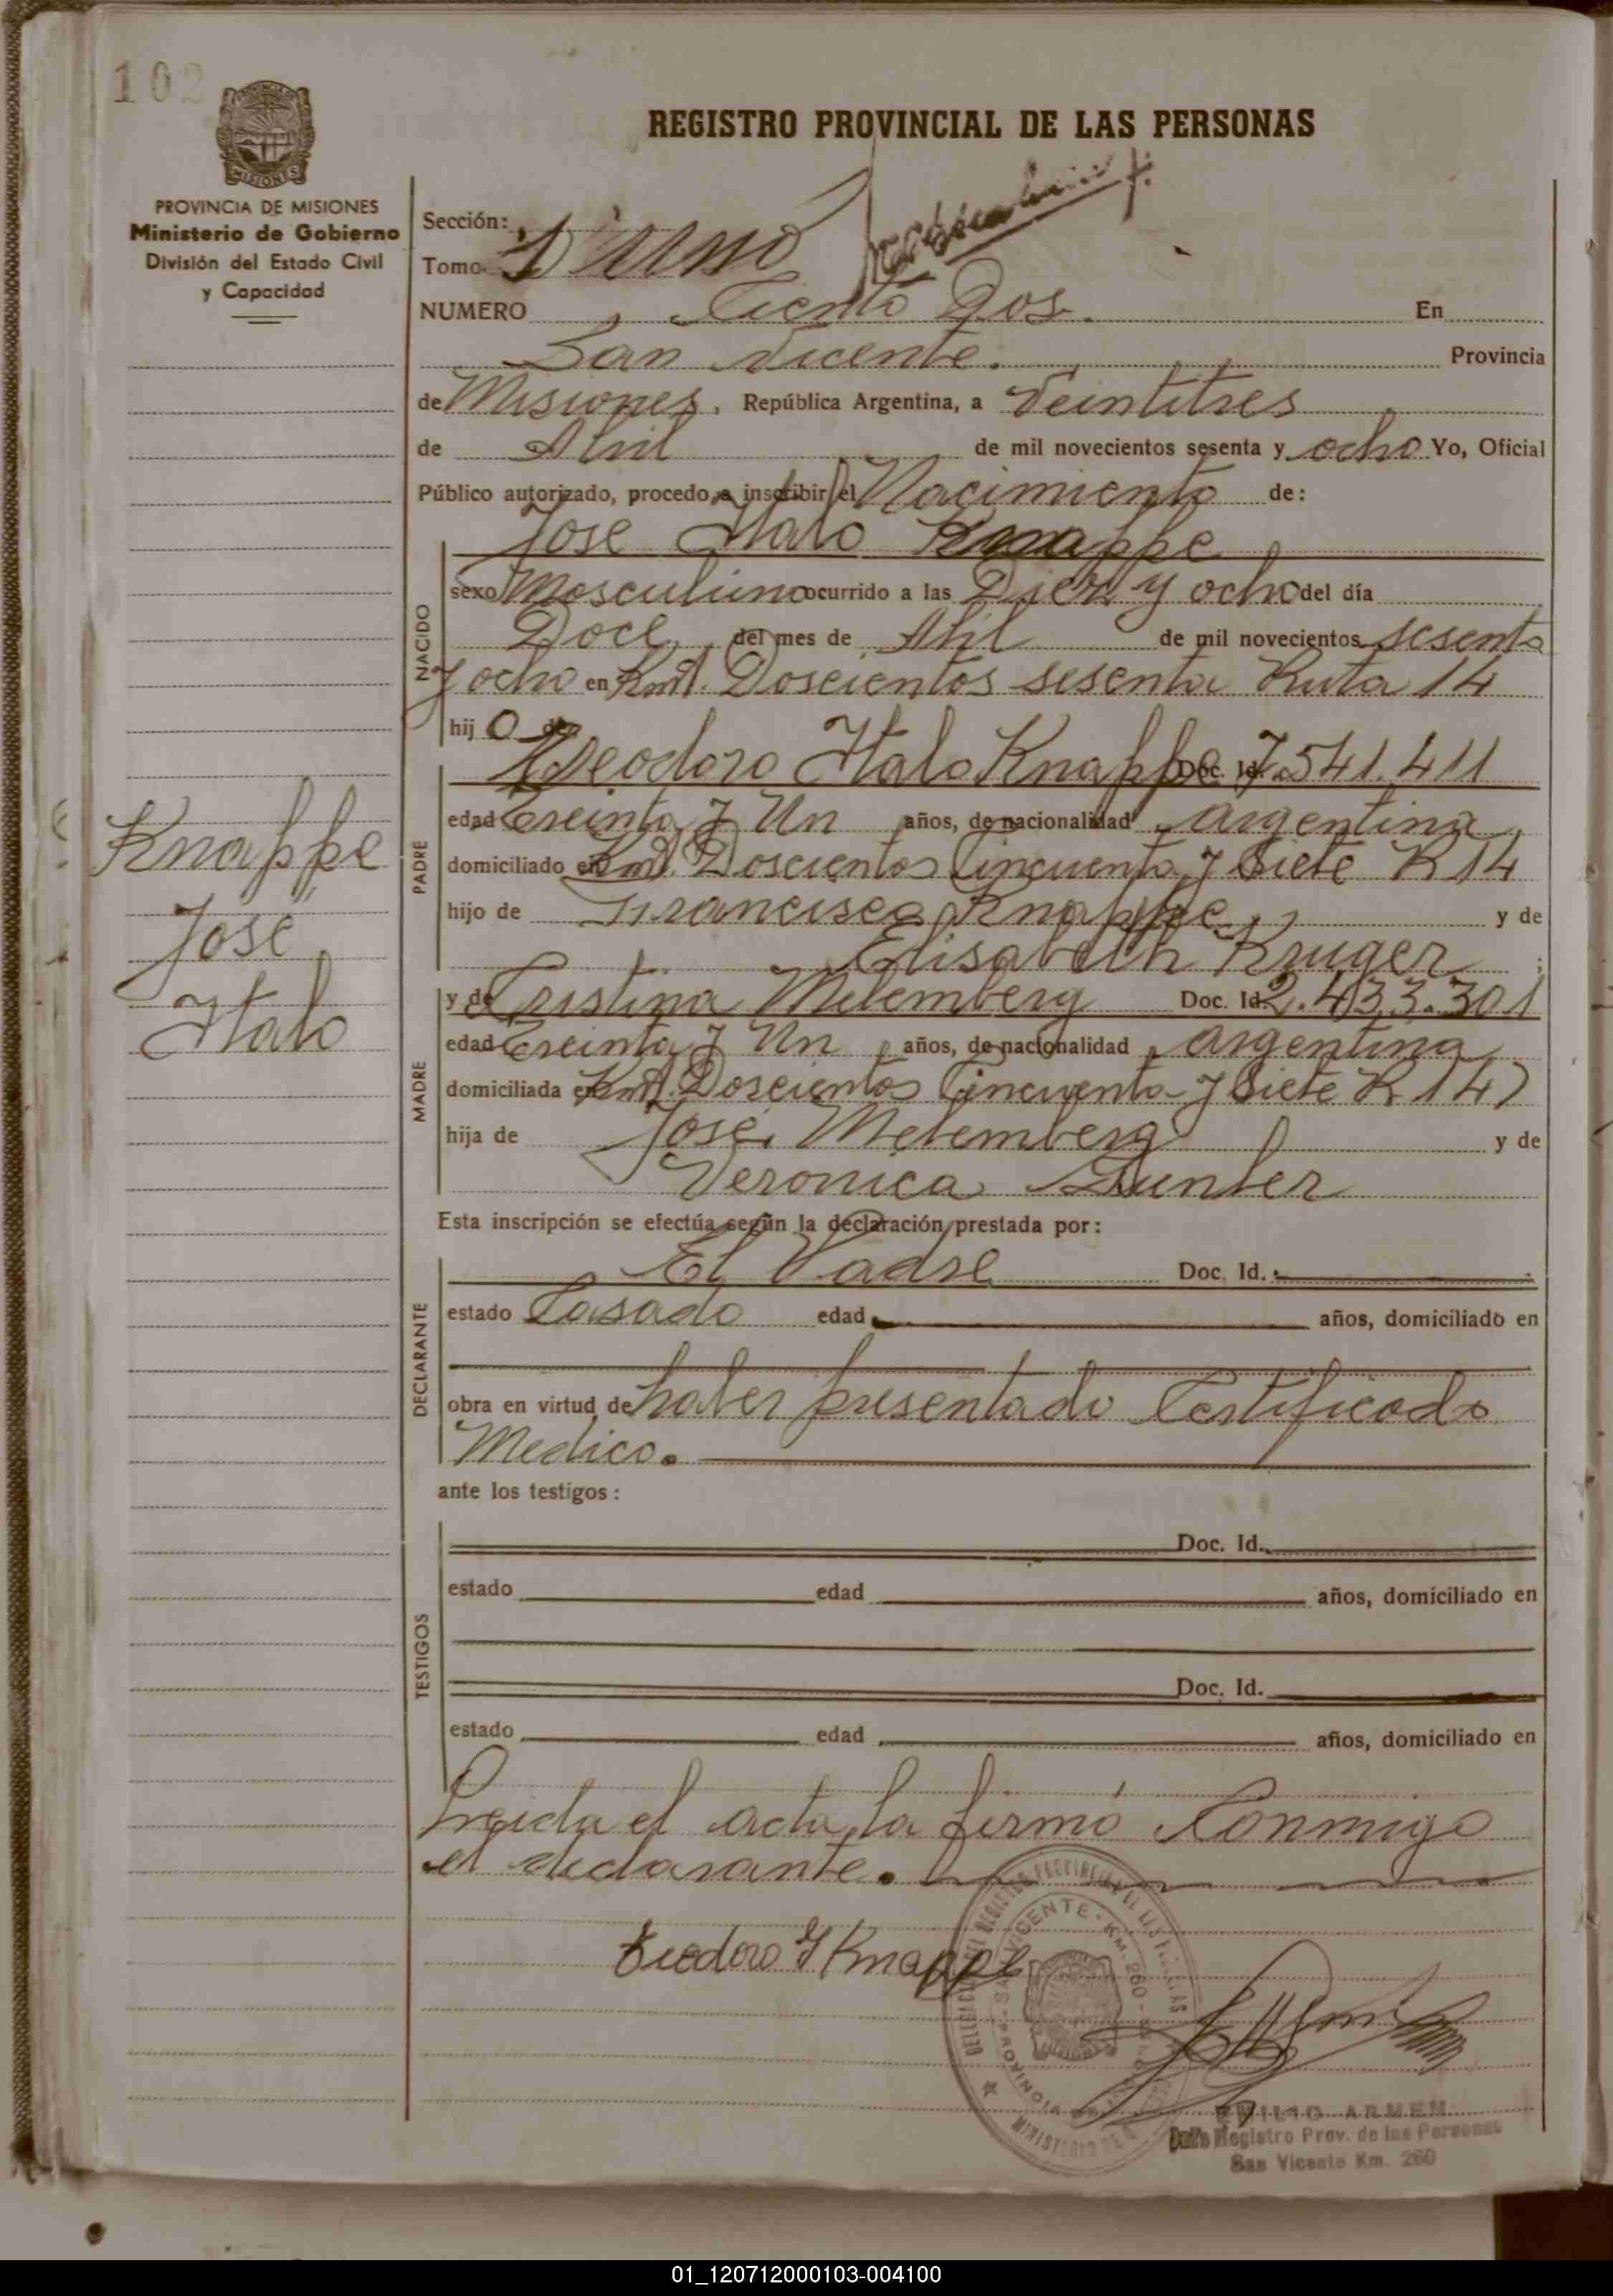 102
REGISTRO PROVINCIAL DE LAS PERSONAS
MISIONES
PROVINCIA DE MISIONES
Ministerio de Gobierno
División del Estado Civil
y Capacidad
Sección:
Tomo 1 Uno
NUMERO Ciento Dos. En
San Vicente. Provincia
de Misiones, República Argentina, a Veintitres
de Abril de mil novecientos sesenta y ocho Yo, Oficial
Público autorizado, procedo a inscribir el Nacimiento de:
Jose Italo Knappe
NACIDO
sexo Masculino ocurrido a las Diez y ocho del día
Doce del mes de Abril de mil novecientos sesenta
y ocho en Kmt. Doscientos sesenta Ruta 14
hijo de
PADRE
Teodoro Italo Knappe Doc. Id. 7.541.411
edad Treinta y Un años, de nacionalidad Argentina
domiciliado en Kmt. Doscientos Cincuenta y Siete R 14
hijo de Francisco Knappe y de
Elisabeth Kruger ;
MADRE
y de Cristina Melemberg Doc. Id. 2.433.301
edad Treinta y Un años, de nacionalidad Argentina
domiciliada en Kmt. Doscientos Cincuenta y Siete R 14
hija de José Melemberg y de
Veronica
Knappe
José
Italo
Esta inscripción se efectúa según la declaración prestada por:
DECLARANTE
El Padre Doc. Id.
estado Casado edad años, domiciliado en
obra en virtud de haber presentado Certificado
Medico.
ante los testigos:
TESTIGOS
Doc. Id.
estado edad años, domiciliado en
Doc. Id.
estado edad años, domiciliado en
Leida el acta, la firmó Conmigo
el declarante.
Teodoro I Knappe
SAN VICENTE - KM. 260
EMILIO ARMEN
Registro Prov. de las Personas
San Vicente Km. 260
01_120712000103-004100